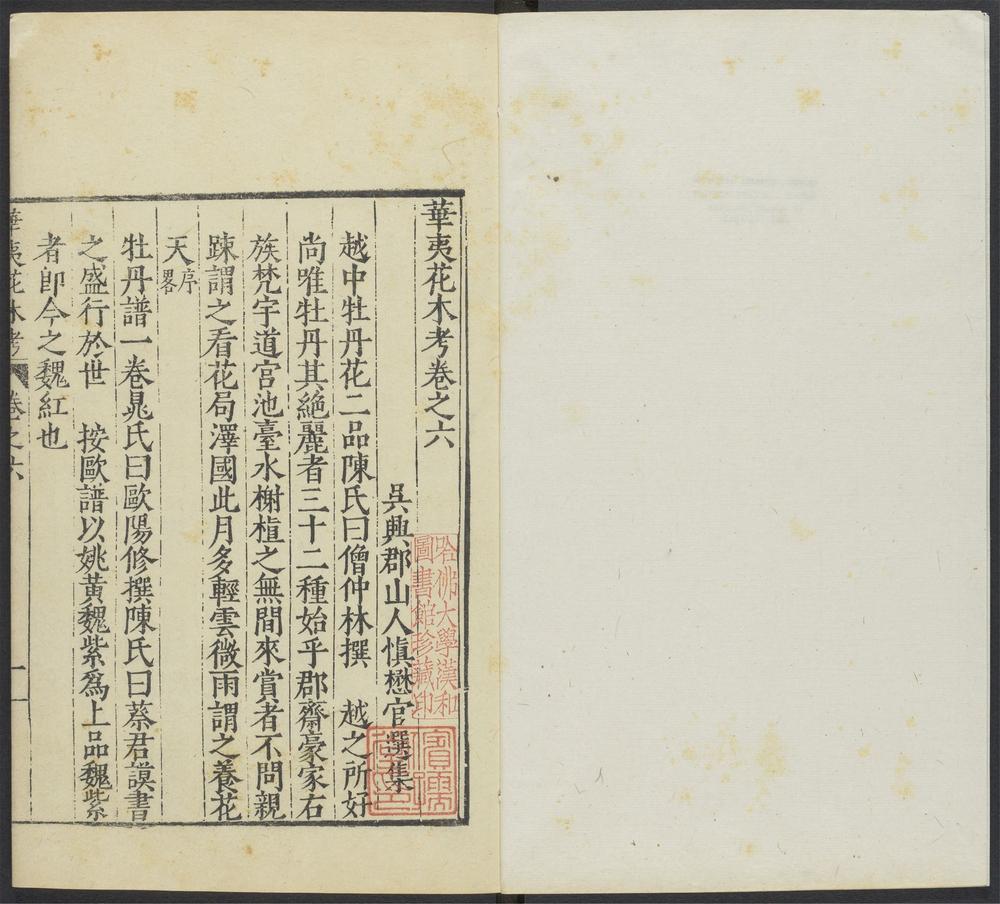 華夷花木考卷之六
吳興郡山人慎懋官選集
越中牡丹花二品陳氏曰僧仲林撰　越之所好
尚唯牡丹其絶麗者三十二種始乎郡齋豪家右
族梵宇道宫池臺水榭植之無間來賞者不問親
踈謂之看花局澤國此月多輕雲微雨謂之養花
天序畧
牡丹譜一卷晁氏曰歐陽修撰陳氏曰蔡君謨書
之盛行於世　按歐譜以姚黄魏紫爲上品魏紫
者卽今之魏紅也
華夷花木考　卷之六　一
哈佛大學漢和
圖書館珍藏印